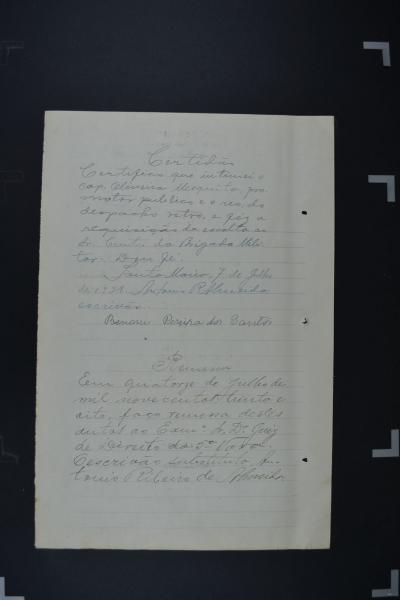 Certidão
Certifico que intimei o
cap. Oliveira Mesquita, pro
motor publico e o reo, do
despacho retro, e fiz a
requisição da escolta ao
Sr. Cmt. da Brigada Mili
tar. Dou fé.
Santa Maria, 7 de Julho
de 1938. Antonio R. Almeida
escrivão
Pereira dos Santos
Remessa
Em quatorze de julho de
mil novecentos trinta e
oito, faço remessa destes
autos ao Exmo. Sr. Dr. Juiz
de Direito da Vara.
O escrivão substituto An
tonio Ribeiro de Almeida